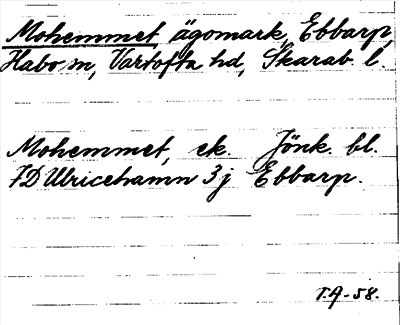 Mohemmet, ägomark, Ebbarp,
Habo sn, Vartofta hd, Skarab. l.
Mohemmet, ek. Jönk. bl.
7D Ulricehamn 3j Ebbarp.
T.A-58.